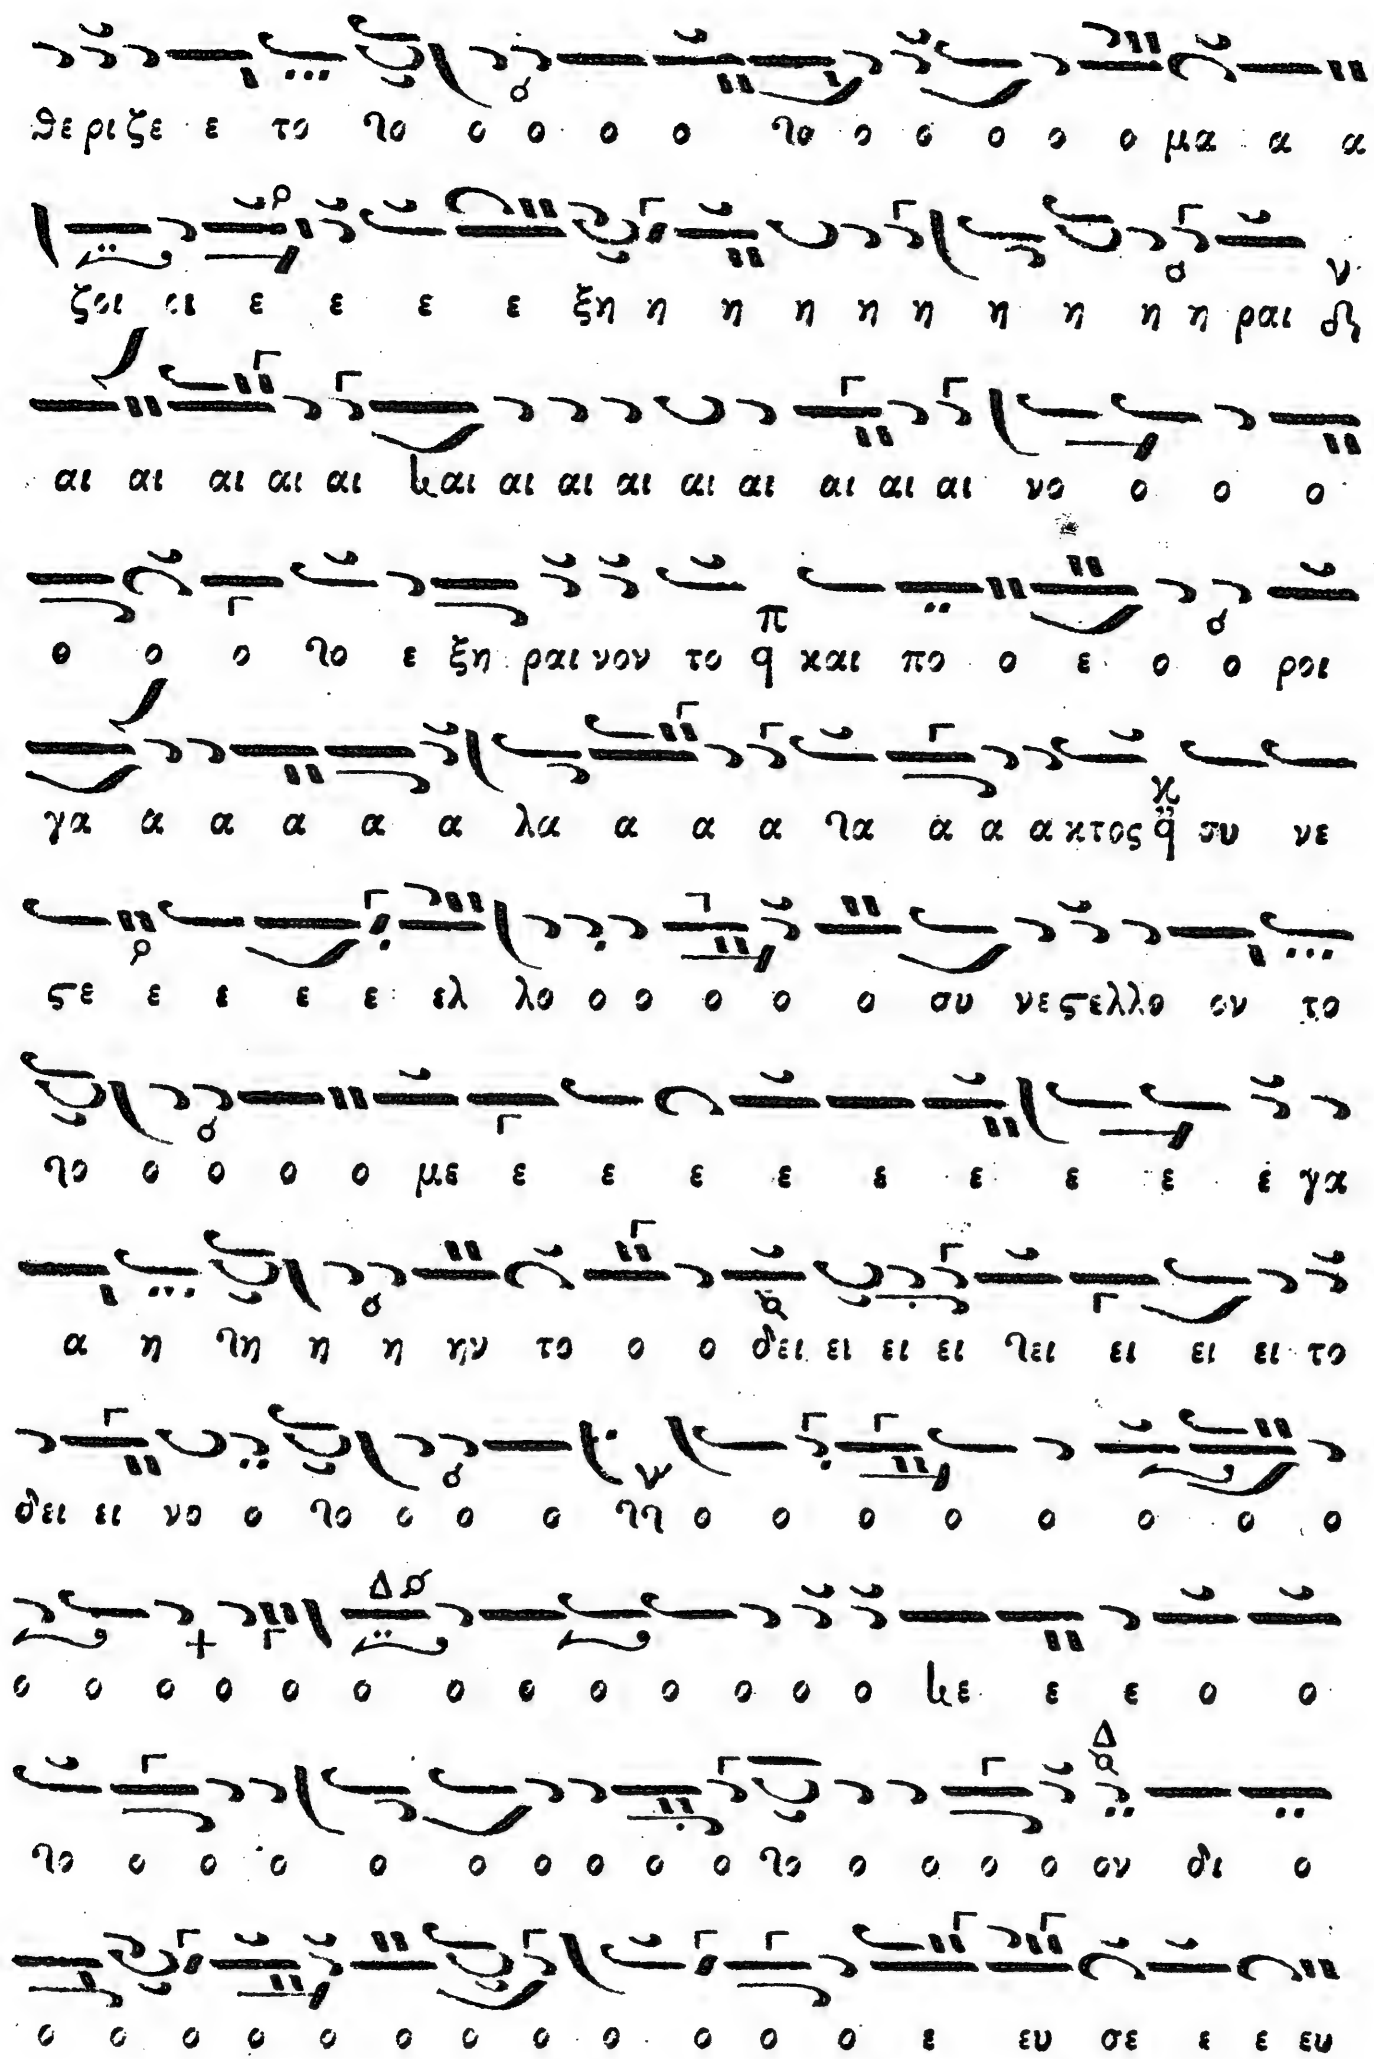 θε ρι ζε ε το το ο ο ο ο το ο ο ο ο ο μα α α
ζοι οι ε ε ε ε ξη η η η η η η η η η ραι
αι αι αι αι αι και αι αι αι αι αι αι αι αι νο ο ο ο
ο ο ο το ε ξη ραι νον το π q και πο ο ε ο ο ροι
γα α α α α α λα α α α τα α α α κτος q συ νε
ϛε ε ε ε ε ελ λο ο ο ο ο ο συ νε ϛελλο ον το
το ο ο ο ο με ε ε ε ε ε ε ε ε ε γα
α η τη η η ην το ο ο δει ει ει ει τει ει ει ει το
δει ει νο ο το ο ο ο ττ ο ο ο ο ο ο ο ο
ο ο ο ο ο ο ο ο ο ο ο ο ο κε ε ε ο ο
το ο ο ο ο ο ο ο ο ο το ο ο ο ο ον δι ο
ο ο ο ο ο ο ο ο ο ο ο ο ε ευ σε ε ε ευ